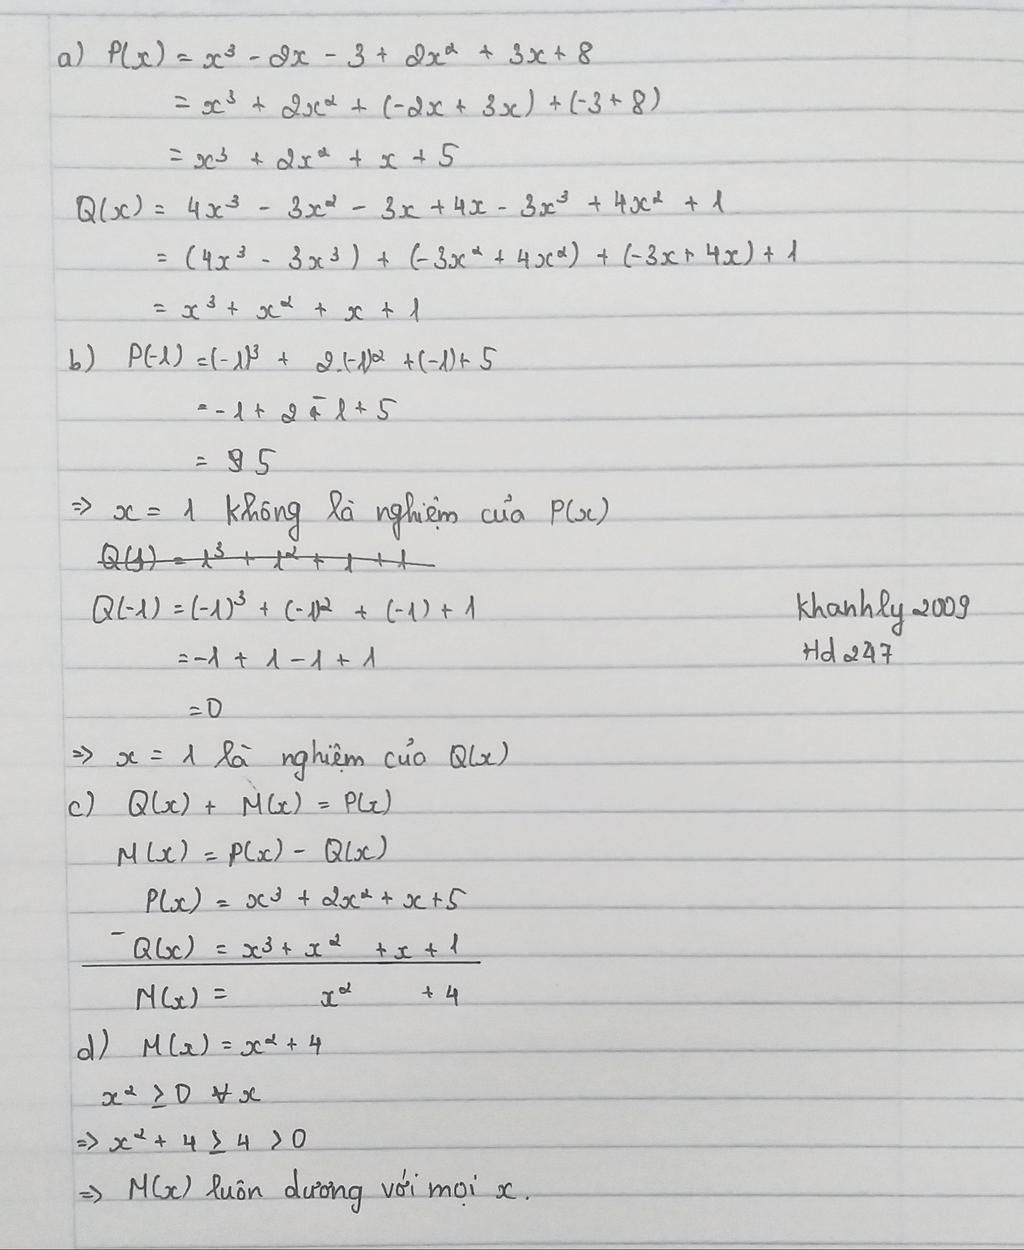 a) P(x) = x³ - 2x - 3 + 2x² + 3x + 8
= x³ + 2x² + (-2x + 3x) + (-3 + 8)
= x³ + 2x² + x + 5
Q(x) = 4x³ - 3x² - 3x + 4x - 3x³ + 4x² + 1
= (4x³ - 3x³) + (-3x² + 4x²) + (-3x + 4x) + 1
= x³ + x² + x + 1
b) P(-1) = (-1)³ + 2.(-1)² + (-1) + 5
= -1 + 2 - 1 + 5
= 5
=> x = 1 không là nghiệm của P(x)
Q(1) = 1³ + 1² + 1 + 1
Q(-1) = (-1)³ + (-1)² + (-1) + 1
= -1 + 1 - 1 + 1
= 0
Khanhly 2009
Hd 247
=> x = 1 là nghiệm của Q(x)
c) Q(x) + M(x) = P(x)
M(x) = P(x) - Q(x)
P(x) = x³ + 2x² + x + 5
- Q(x) = x³ + x² + x + 1
M(x) = x² + 4
d) M(x) = x² + 4
x² ≥ 0 ∀ x
=> x² + 4 ≥ 4 > 0
=> M(x) luôn dương với mọi x.